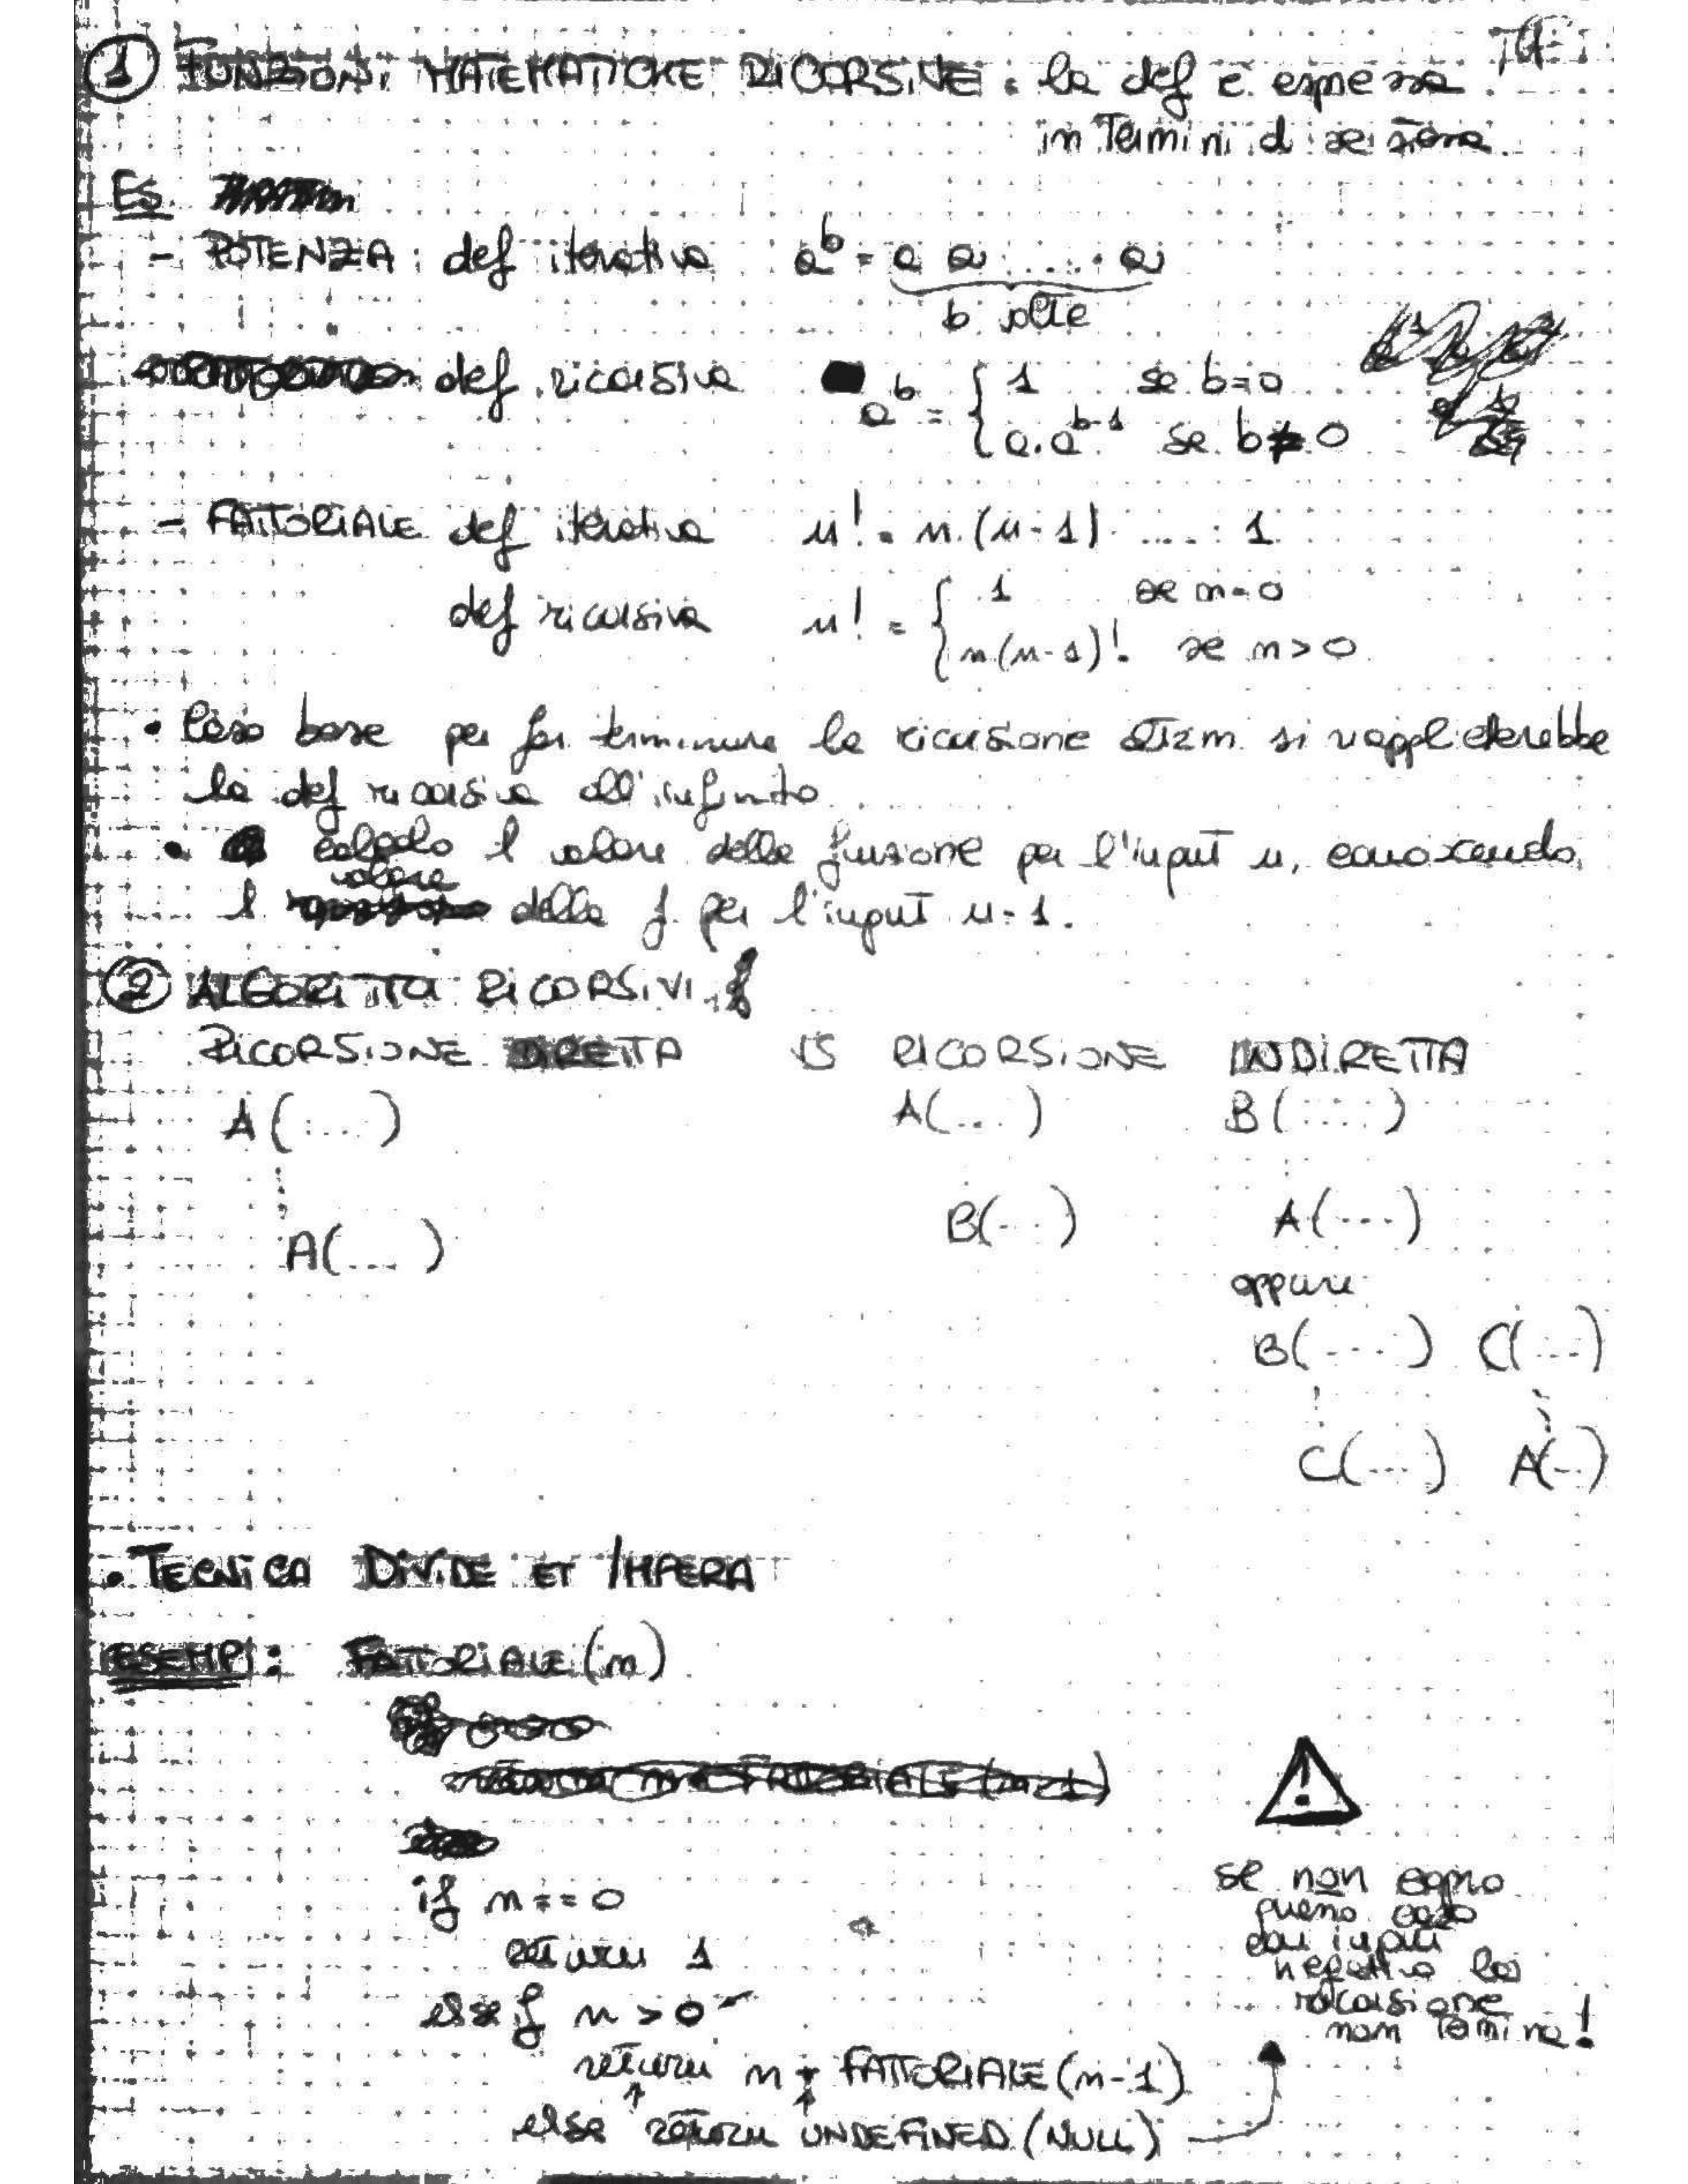 ① FUNZIONI MATEMATICHE RICORSIVE: la def è espressa
in Termini di se stessa
Es.
- POTENZA: def iterativa a^b = a a ..... a
b volte
def. ricorsiva a^b = { 1 se b=0
a.a^b-1 se b≠0
- FATTORIALE def iterativa n! = n.(n-1) .... 1
def ricorsiva n! = { 1 se n=0
n(n-1)! se n>0
• Caso base per far terminare la ricorsione si riapplicherebbe
la def ricorsiva all'infinito
• calcolo l valore della funzione per l'input n, conoscendo
l valore della f. per l'input n-1.
② ALGORITMI RICORSIVI
RICORSIONE DIRETTA VS RICORSIONE INDIRETTA
A(....) A(...) B(....)
A(....) B(...) A(....)
oppure
B(....) C(...)
C(....) A(..)
• TECNICA DIVIDE ET IMPERA
ESEMPI: FATTORIALE(n)
if n==0
return 1
else if n>0
return n * FATTORIALE(n-1)
else return UNDEFINED (NULL)
se non copro
questo caso
con input
negativo la
ricorsione
non termina!